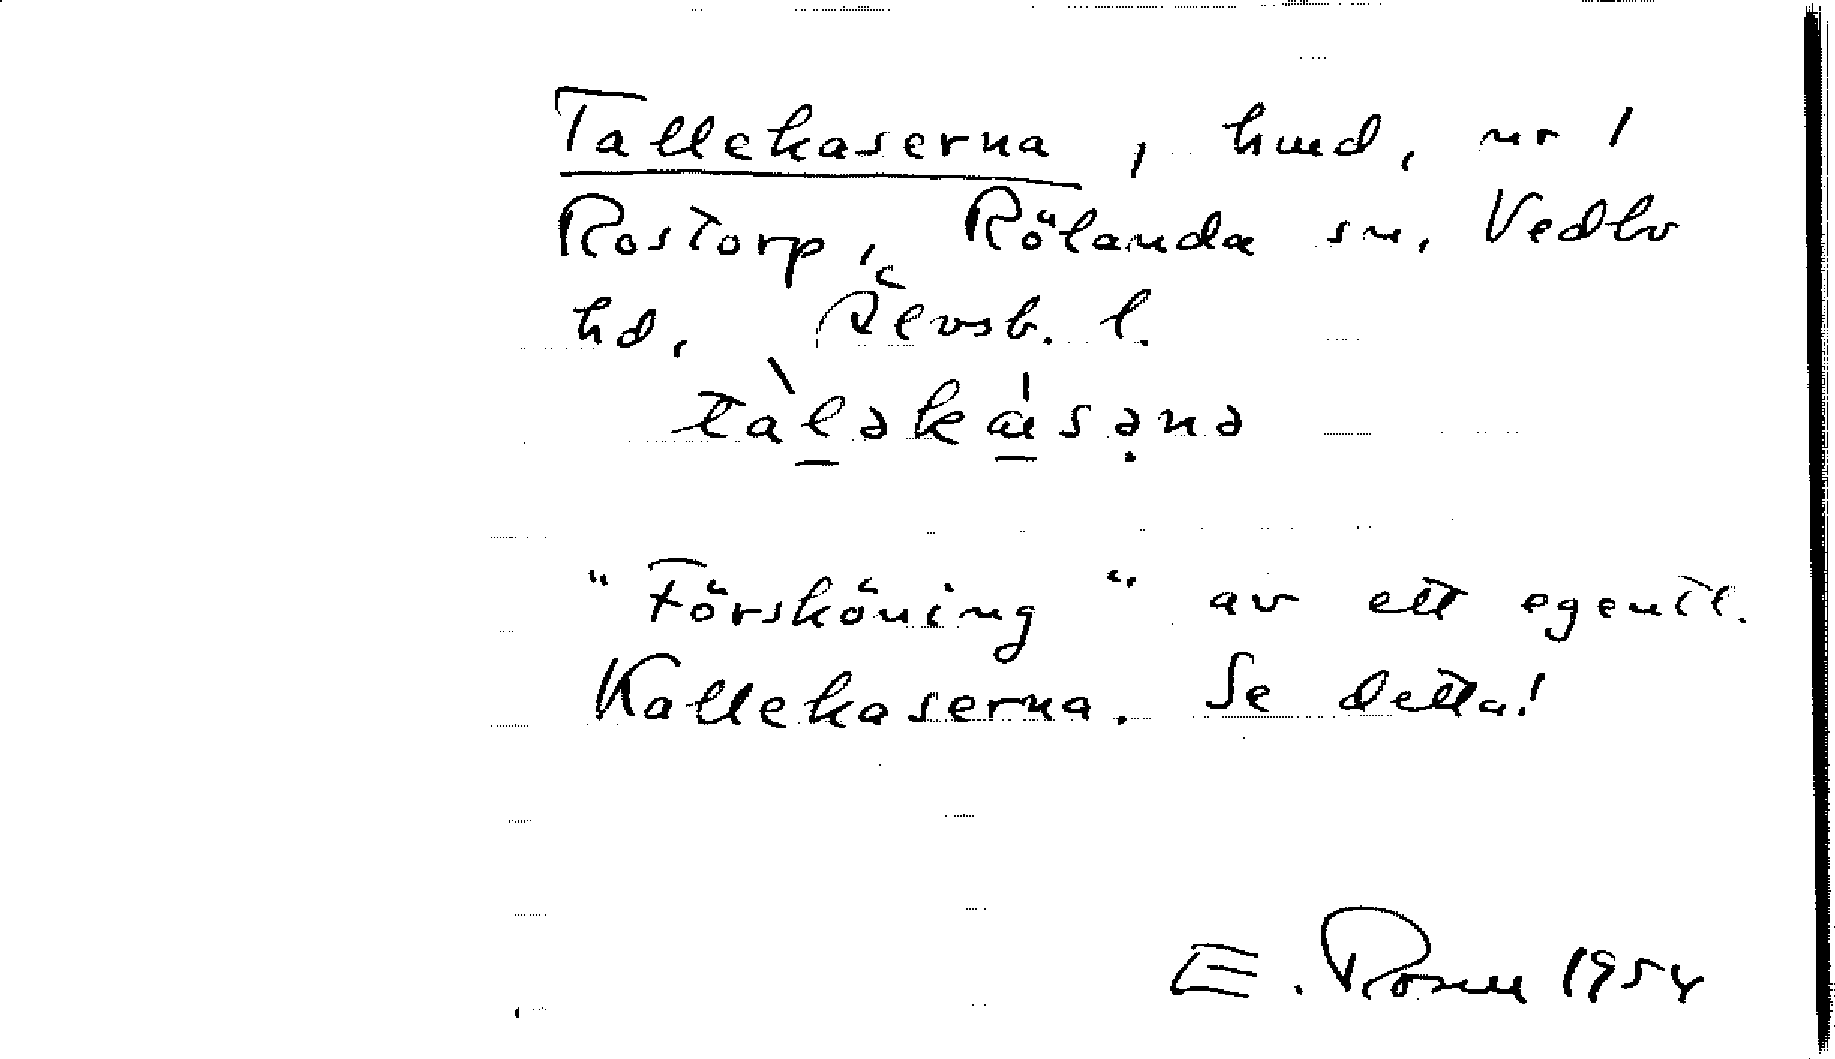 Tallekaserna, hmd, nr 1
Rostorp, Rölanda sn, Vedbo
hd, Älvsb. l.
tàləkásənə
"Försköning" av ett egentl.
Kallekaserna. Se detta!
E. Rosell 1954